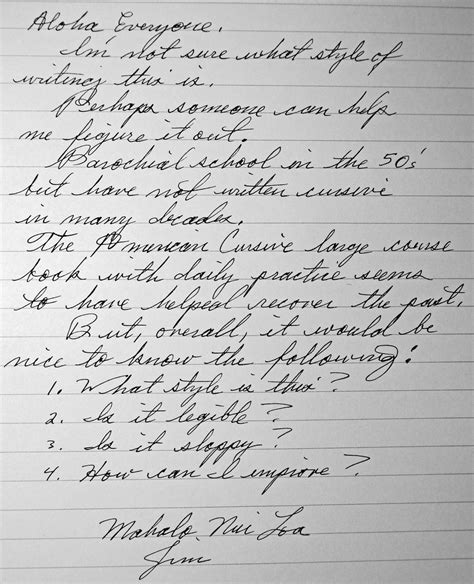 Aloha Everyone,
I'm not sure what style of
writing this is.
Perhaps someone can help
me figure it out.
Parochial school in the 50's
but have not written cursive
in many decades.
The American Cursive large course
book with daily practice seems
to have helped recover the past.
But, overall, it would be
nice to know the following:
1. What style is this?
2. Is it legible?
3. Is it sloppy?
4. How can I improve?
Mahalo Nui Loa
Jim